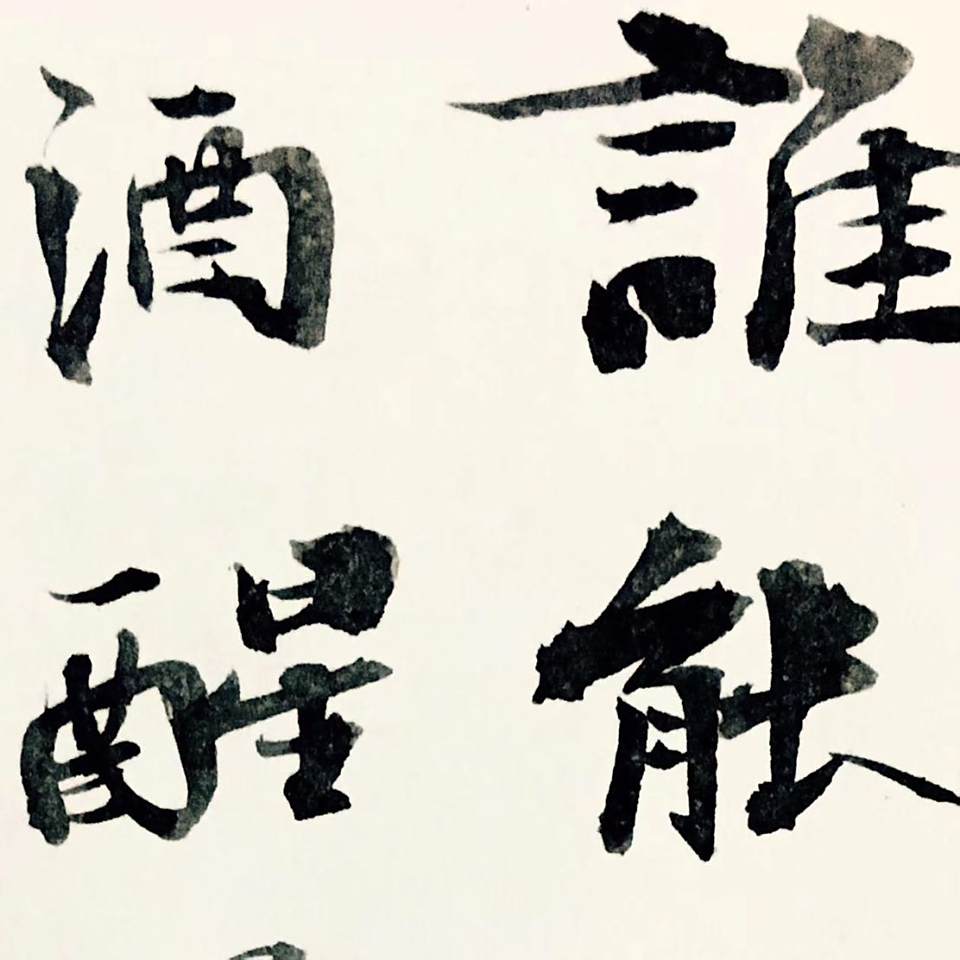 誰能
酒醒